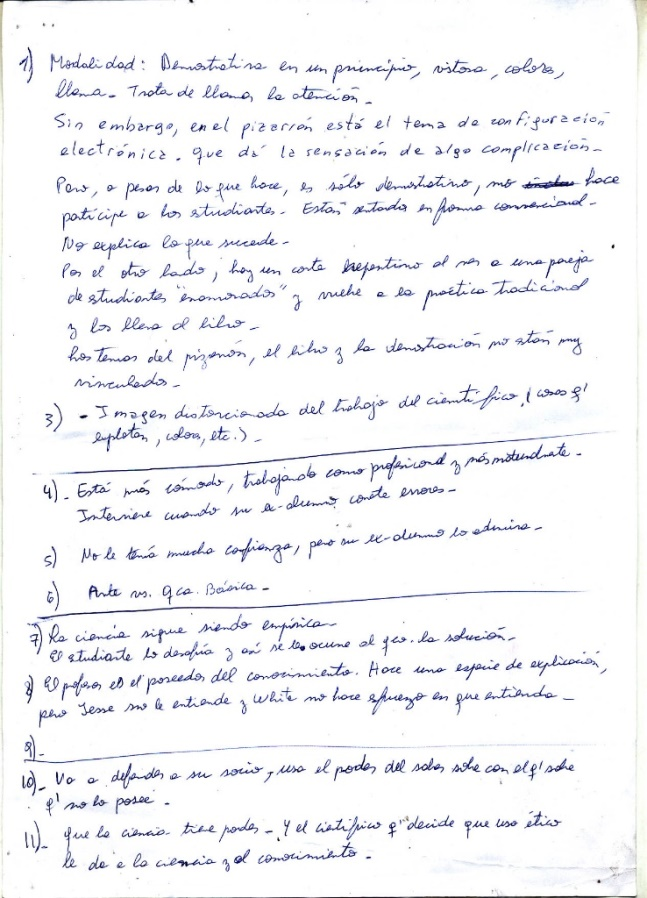 1) Modalidad: Demostrativa en un principio, vistosa, colores,
llama - Trata de llamar la atención -
Sin embargo, en el pizarrón está el tema de configuración
electrónica. que dá la sensación de algo complicación -
Pero, a pesar de lo que hace, es sólo demostrativo, no hace
partícipe a los estudiantes - Están sentados en forma convencional -
No explica lo que sucede -
Por el otro lado, hay un corte repentino al ver a una pareja
de estudiantes "enamorados" y vuelve a la práctica tradicional
y los lleva al libro -
Los temas del pizarrón, el libro y la demostración no están muy
vinculados -
3) - Imagen distorcionada del trabajo del científico, (cosas q'
explotan, colores, etc.) -
4) - Está más cómodo, trabajando como profesional y más
Interviene cuando su ex-alumno comete errores -
5) No le tenía mucha confianza, pero su ex-alumno lo admira -
6) Arte vs. Qca. Básica -
7) La ciencia sigue siendo empírica -
El estudiante lo desafía y así se le ocurre al la solución -
8) El profesor es el poseedor del conocimiento. Hace una especie de explicación,
pero Jesse no le entiende y White no hace esfuerzo en que entienda -
9) -
10) - Va a defender a su socio, usa el poder del saber sobre con el q' sabe
q' no lo posee -
11) - que la ciencia tiene poder - Y el científico q' decide que uso ético
le da a la ciencia y al conocimiento -